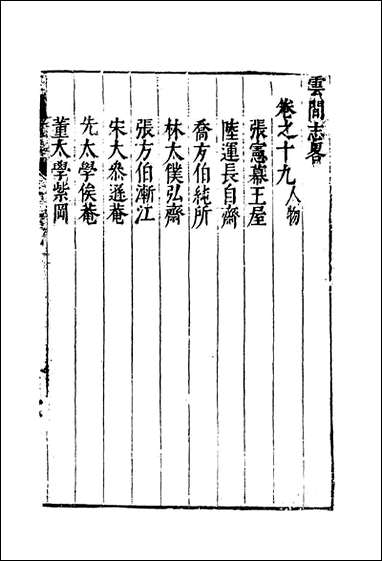 雲間志畧
卷之十九人物
張憲幕王屋
陸運長自齋
喬方伯純所
林太僕弘齋
張方伯漸江
宋大叅遜菴
先太學俟菴
董太學紫岡